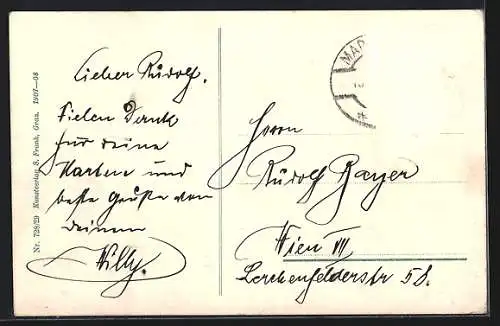 Lieber Rudolf.
Vielen Dank
für deine
Karten und
beste Grüße von
deinem
Willy.
Nr. 728/29 Kunstverlag S. Frank, Graz. 1907—08
MAR
Herrn
Rudolf Bayer
Wien VII
Lerchenfelderstr 58.